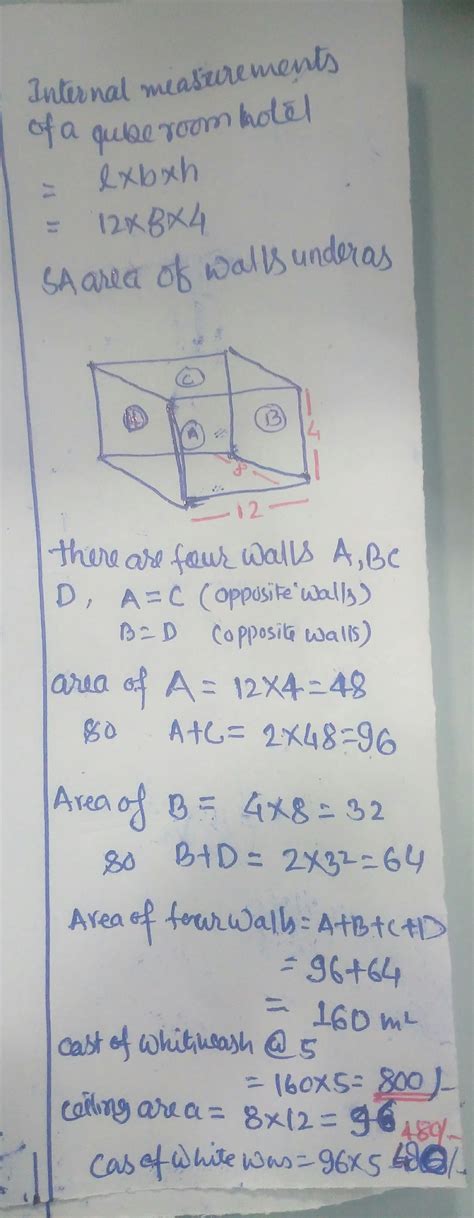 Internal measurements
of a qube room hotel
= lxbxh
= 12x8x4
SA area of walls under as
C
D
A
B
4
8
12
there are four walls A, BC
D, A=C (opposite walls)
B=D (opposite walls)
area of A = 12x4=48
so A+C= 2x48=96
Area of B = 4x8=32
so B+D = 2x32=64
Area of four walls = A+B+C+D
= 96+64
= 160 m²
cast of whitiwash @ 5
= 160x5= 800/-
ceiling area = 8x12 = 96
480/-
Cas of white was = 96x5 480/-